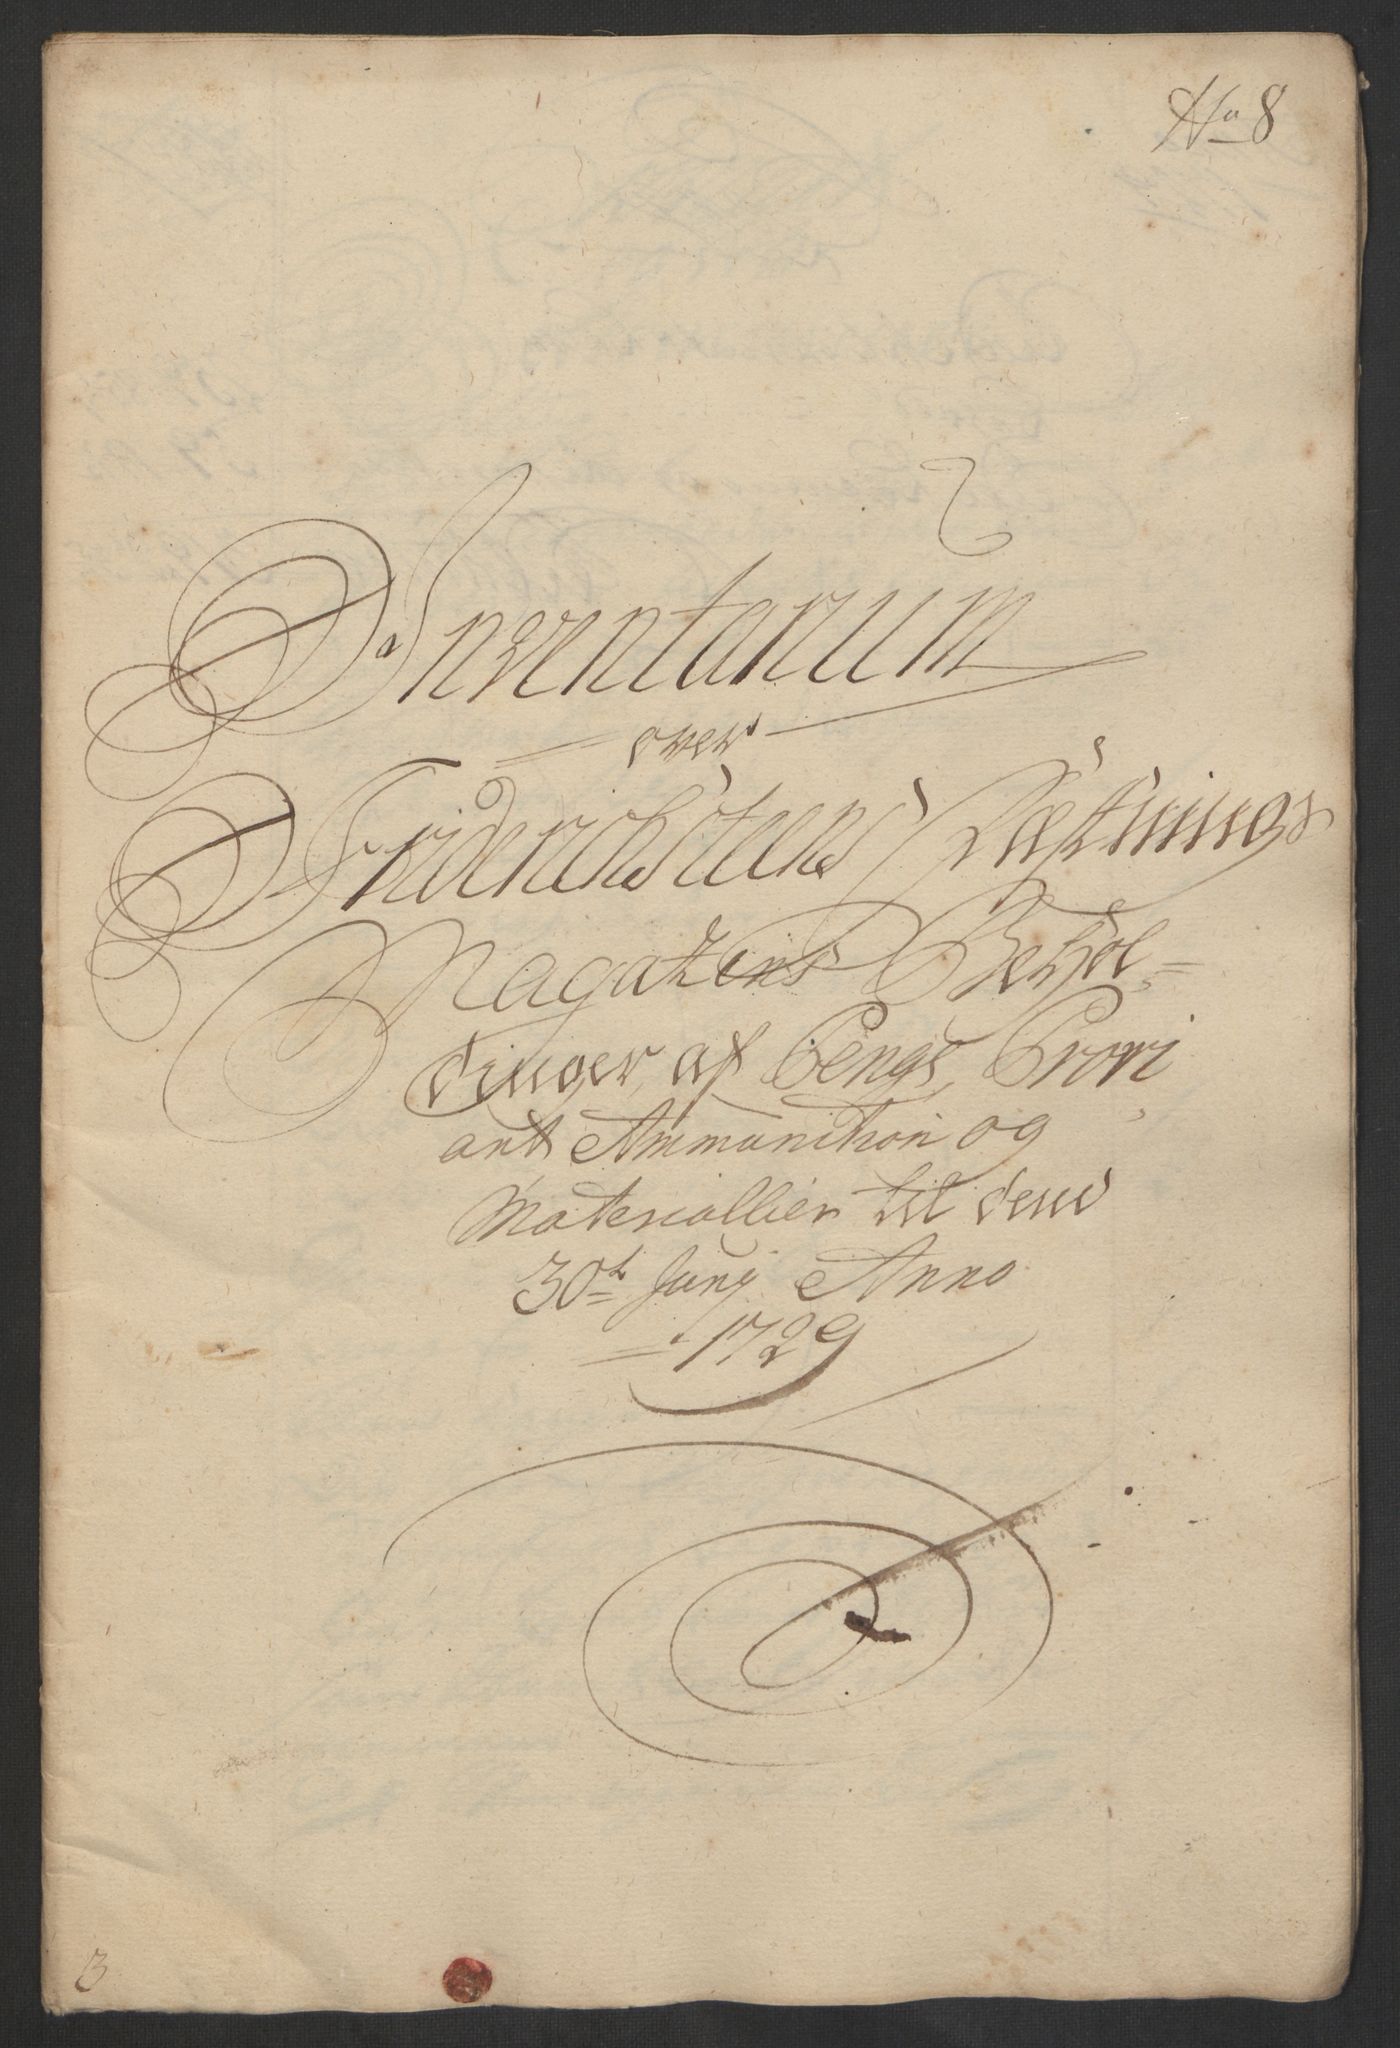 No 8
Inventarium
over
Friderichsteens Fæstnings
Magatzins Behol-
dinger, af Penge, Provi
ant Ammunition og
Materiallier til dend
30te Junij Anno
1729
3